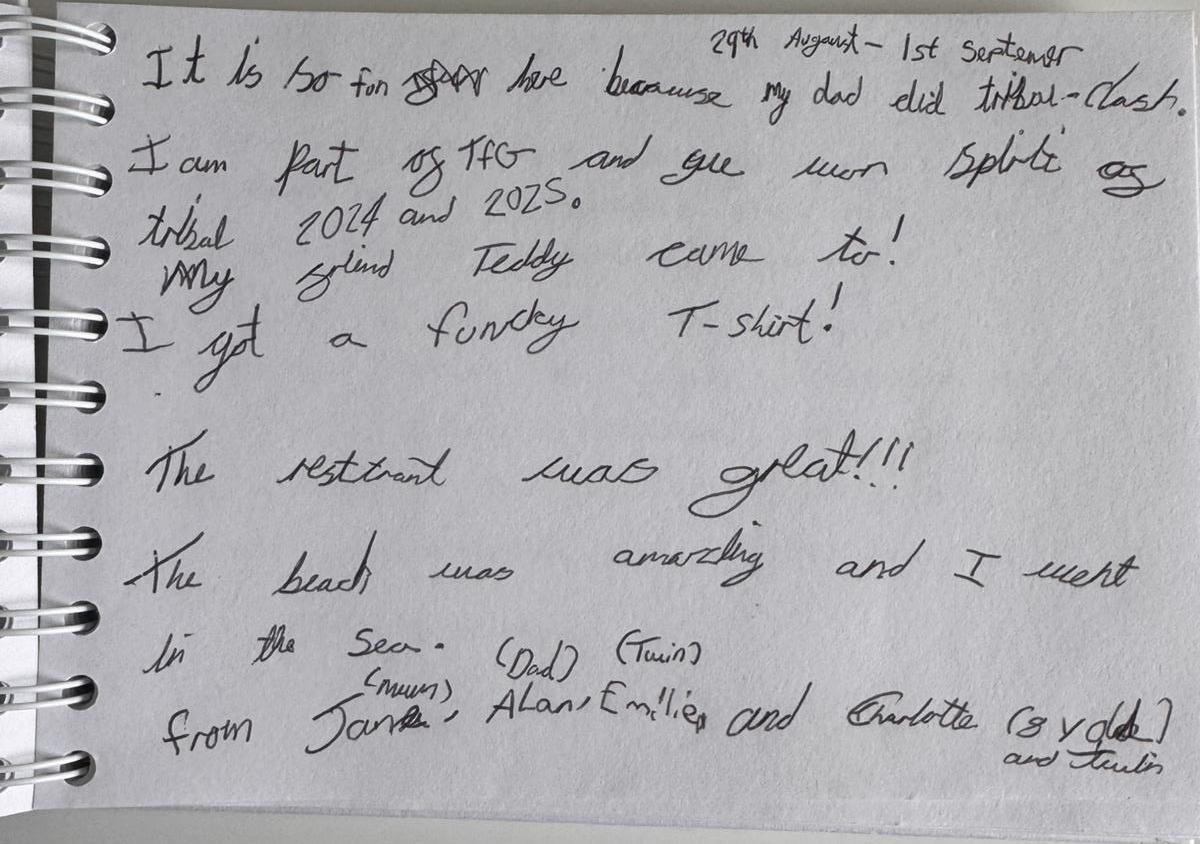 29th Augast - 1st Septemer
It is so fun here because my dad did tribal-clash.
I am part of TFG and we won spirit of
tribal 2024 and 2025.
My friend Teddy came to!
I got a funcky T-shirt!
The resttrant was great!!!
The beach was amarzing and I went
in the Sea.
(mum) (Dad) (Twin)
from Jane, Alan, Emilie, and Charlotte (8 y old)
and twin